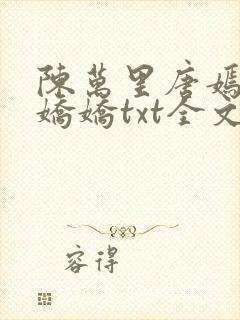 陳萬里唐嫣
嬌嬌txt全文
容得